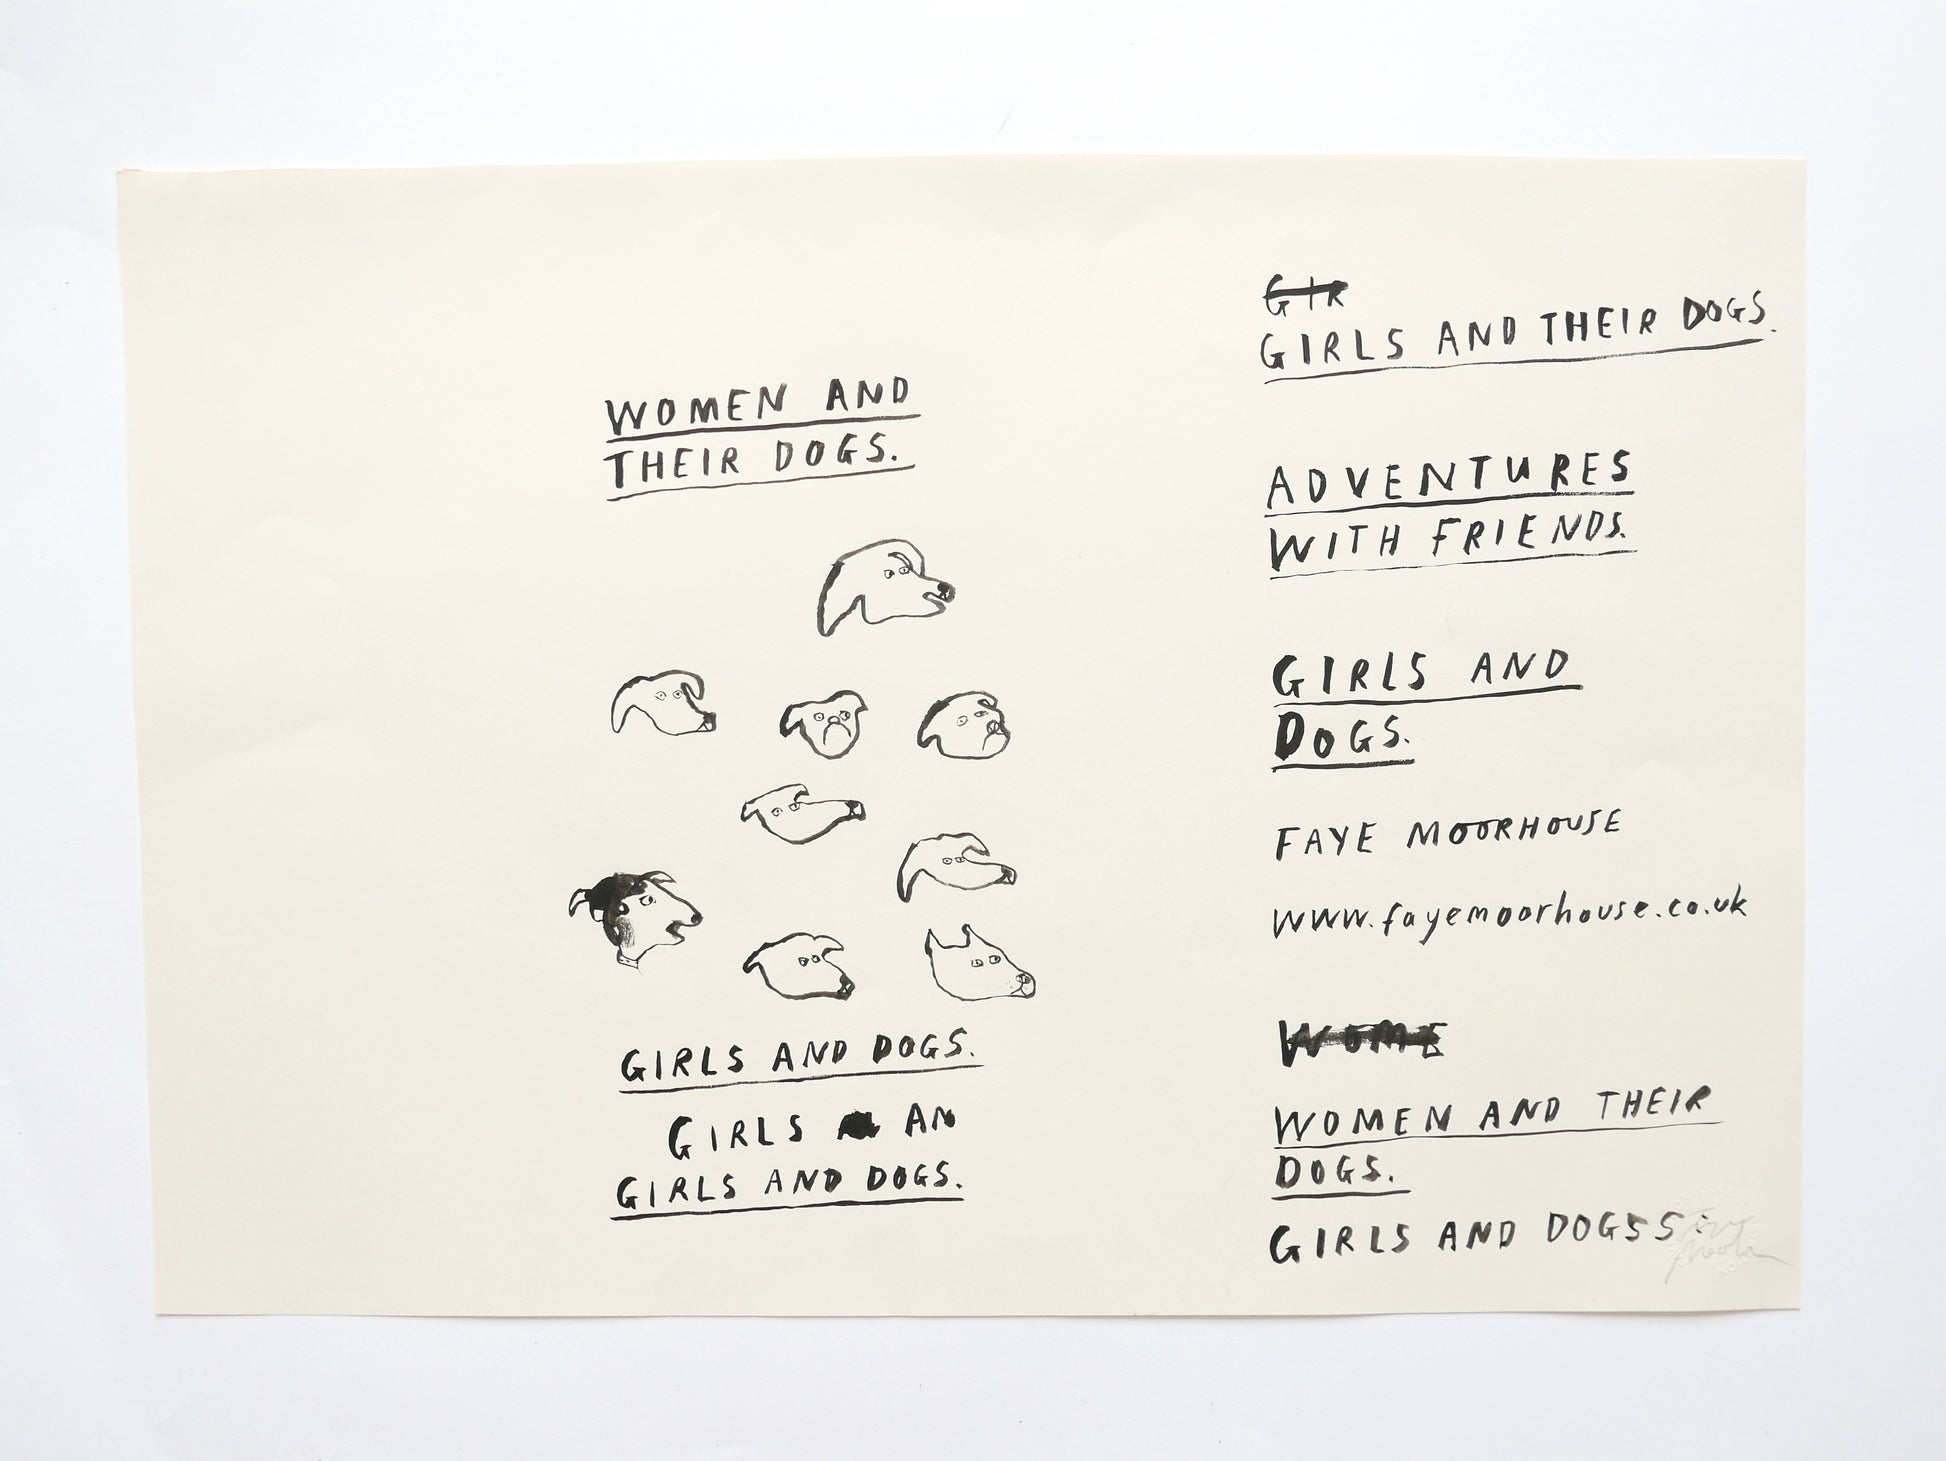 WOMEN AND
THEIR DOGS.
GIRLS AND DOGS.
GIRLS AN
GIRLS AND DOGS.
GIR
GIRLS AND THEIR DOGS.
ADVENTURES
WITH FRIENDS.
GIRLS AND
DOGS.
FAYE MOORHOUSE
www.fayemoorhouse.co.uk
WOME
WOMEN AND THEIR
DOGS.
GIRLS AND DOGSS.